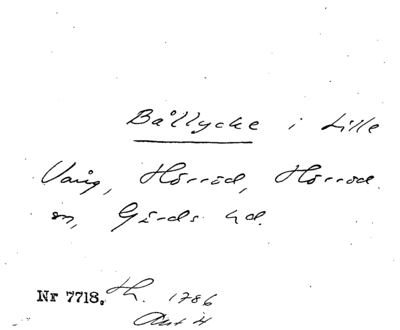 Bållycke i Lille
Vång, Hörröd, Hörröd
sn, Gärds hd.
Nr 7718. Th. 1786
Akt 4